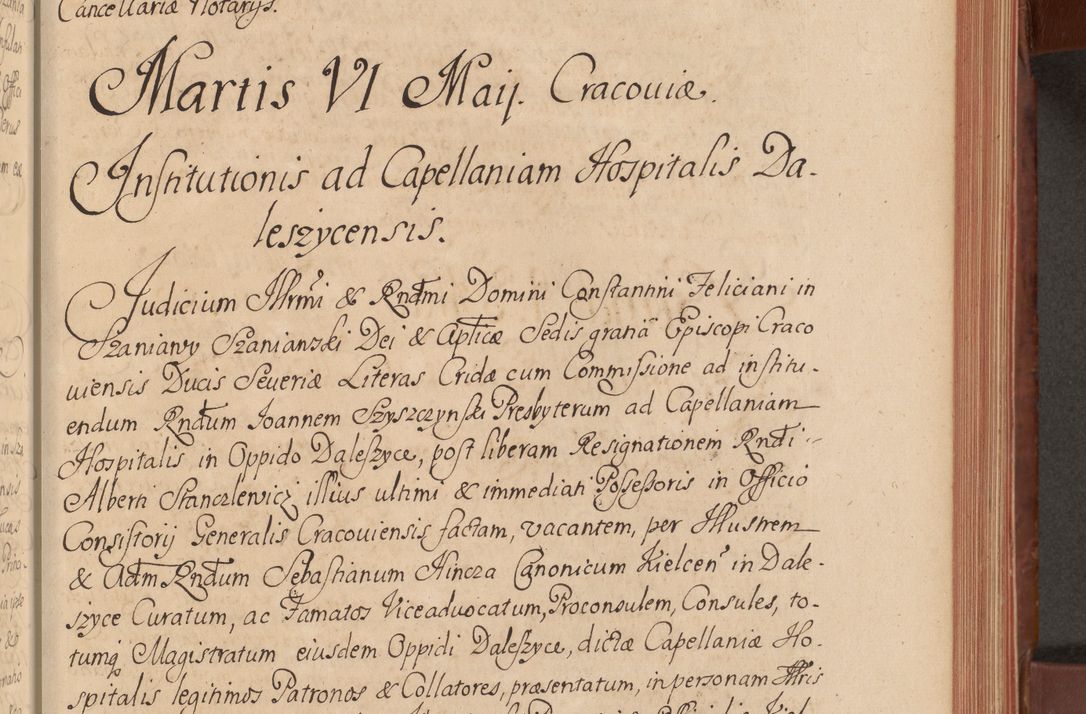 Cancellariæ Notarijs.
Martis VI Maij. Cracoviæ.
Institutionis ad Capellaniam Hospitalis Da-
leszycensis.
Judicium Illrmi & Rndmi Domini Constantini Feliciani in
Szaniawy Szaniawski Dei & Aplicæ Sedis gratiâ Episcopi Craco
viensis Ducis Severiæ Literas Cridæ cum Commissione ad institu-
endum Rndum Joannem Szyszczynski Presbyterum ad Capellaniam
Hospitalis in Oppido Daleszyce, post liberam Resignationem Rndi
Alberti Stanczlewicz illius ultimi & immediati Possessoris in Officio
Consistorij Generalis Cracoviensis factam, vacantem, per Illustrem
& Adm Rndum Sebastianum Hincza Canonicum Kielcen in Dale-
szyce Curatum, ac Famatos Viceadvocatum, Proconsulem, Consules, to-
tumq Magistratum eiusdem Oppidi Daleszyce, dictæ Capellaniæ Ho-
spitalis legitimos Patronos & Collatores, præsentatum, in personam Illris